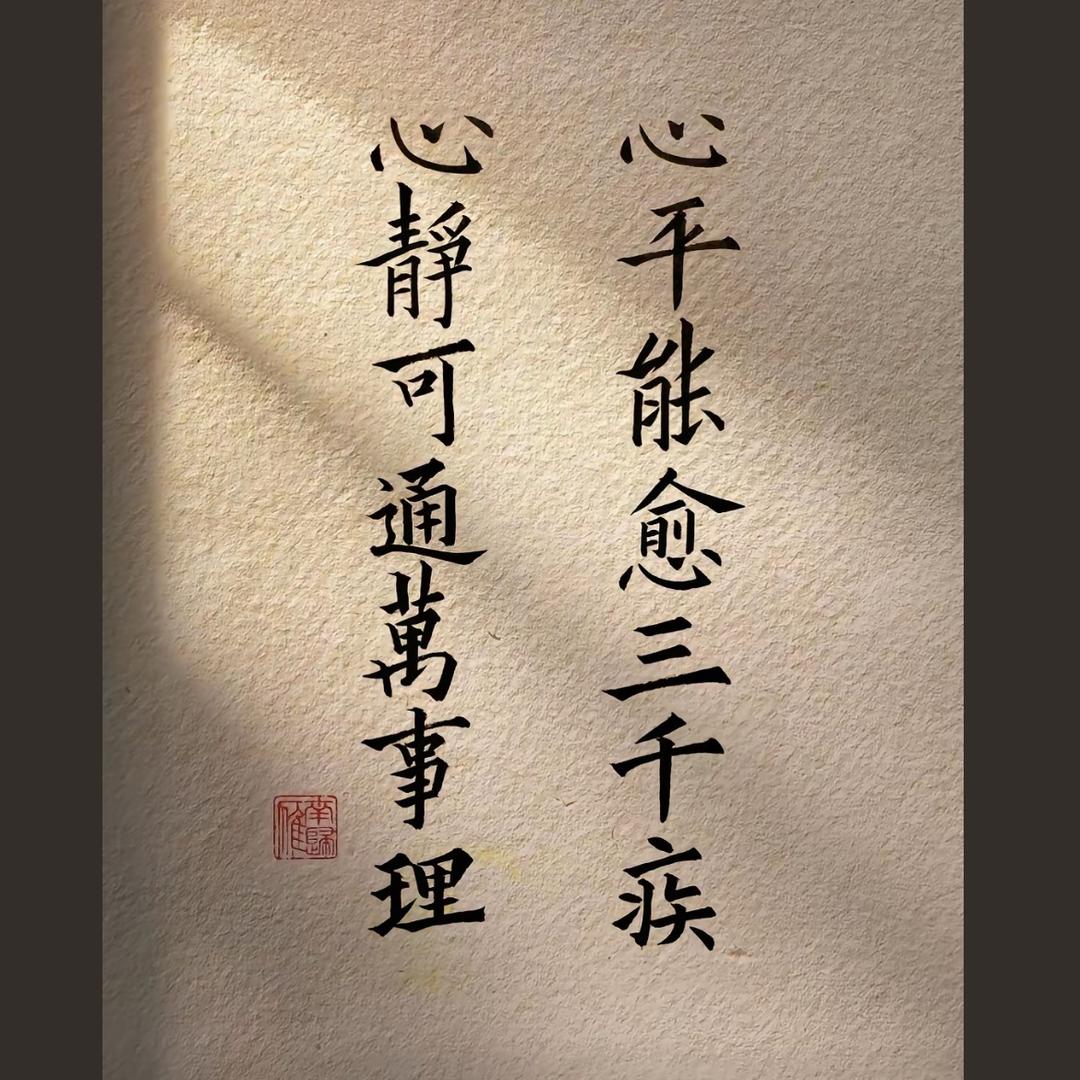 心平能愈三千疾
心靜可通萬事理
南歸雁